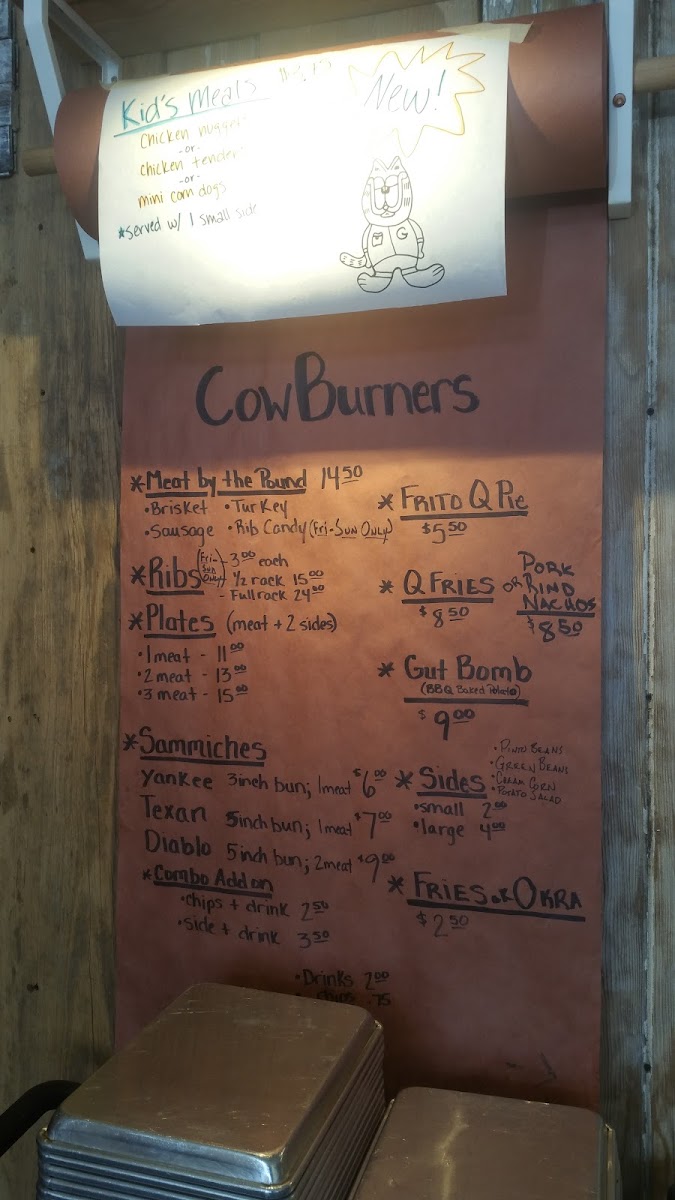 Kid's Meals
New!
Chicken nugget
-or-
chicken tender
-or-
mini corn dogs
*served w/ 1 small side
G
CowBurners
*Meat by the Pound 14.50
•Brisket •Turkey
•Sausage •Rib Candy (Fri-Sun Only)
*Ribs (Fri-Sun Only) - 3.00 each
- 1/2 rack 15.00
- Full rack 24.00
*Plates (meat + 2 sides)
•1 meat - 11.00
•2 meat - 13.00
•3 meat - 15.00
*Sammiches
Yankee 3inch bun; 1meat $6.00
Texan 5inch bun; 1meat $7.00
Diablo 5inch bun; 2meat $9.00
*Combo Add on
•chips + drink 2.50
•side + drink 3.50
•Drinks 2.00
•chips .75
*Frito Q Pie
$5.50
*Q Fries or Pork Rind Nachos
$8.50 $8.50
*Gut Bomb
(BBQ Baked Potato)
$9.00
*Sides
•Pinto Beans
•Green Beans
•Cream Corn
•Potato Salad
•small 2.00
•large 4.00
*Fries or Okra
$2.50